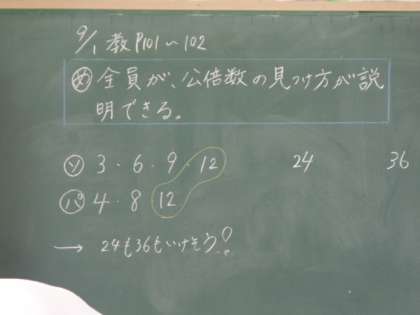 9/1 教P101～102
め 全員が、公倍数の見つけ方が説
明できる。
ソ 3・6・9・12 24 36
パ 4・8 12
→ 24も36もいけそう!